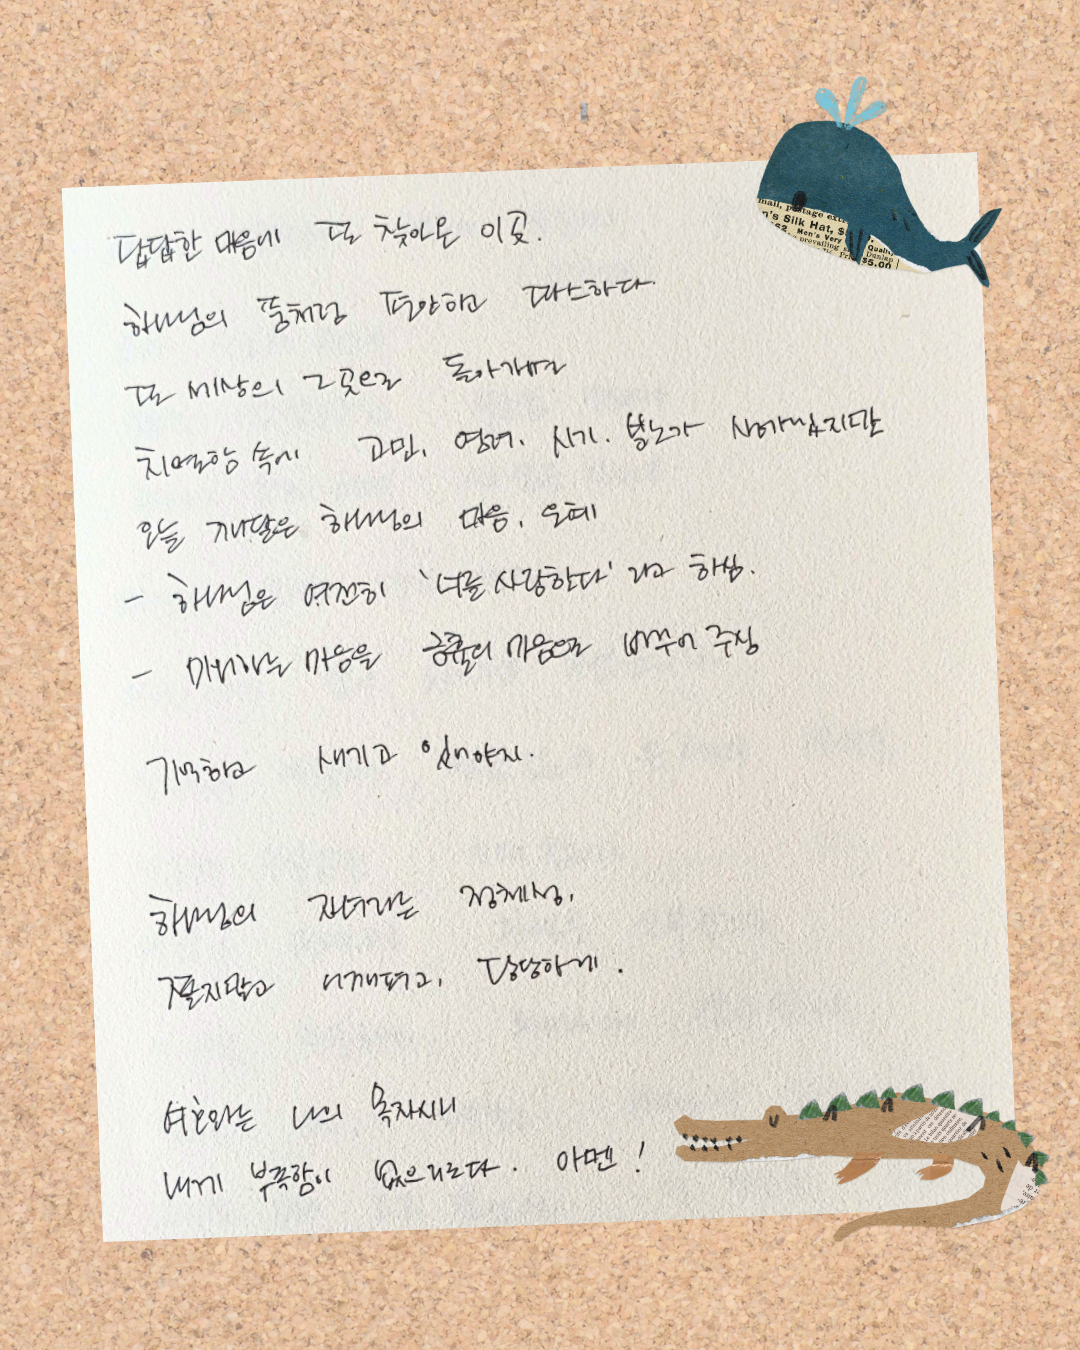 답답한 마음에 또 찾아온 이곳.
하나님의 품처럼 편안하고 따스하다.
또 세상의 그곳으로 돌아가면
치열함 속에 고민, 염려, 시기, 분노가 사로잡겠지만
오늘 깨달은 하나님의 마음, 은혜
- 하나님은 여전히 '너를 사랑한다' 라고 하심.
- 미워하는 마음을 긍휼의 마음으로 바꾸어 주심
기억하고 새기고 있어야지.
하나님의 자녀라는 정체성,
쫄지말고 어깨펴고, 당당하게.
여호와는 나의 목자시니
내게 부족함이 없으리로다. 아멘!
mail, postage ext
n's Silk Hat, $
Men's Very
Quality
prevailing
Dunlap
$5.00